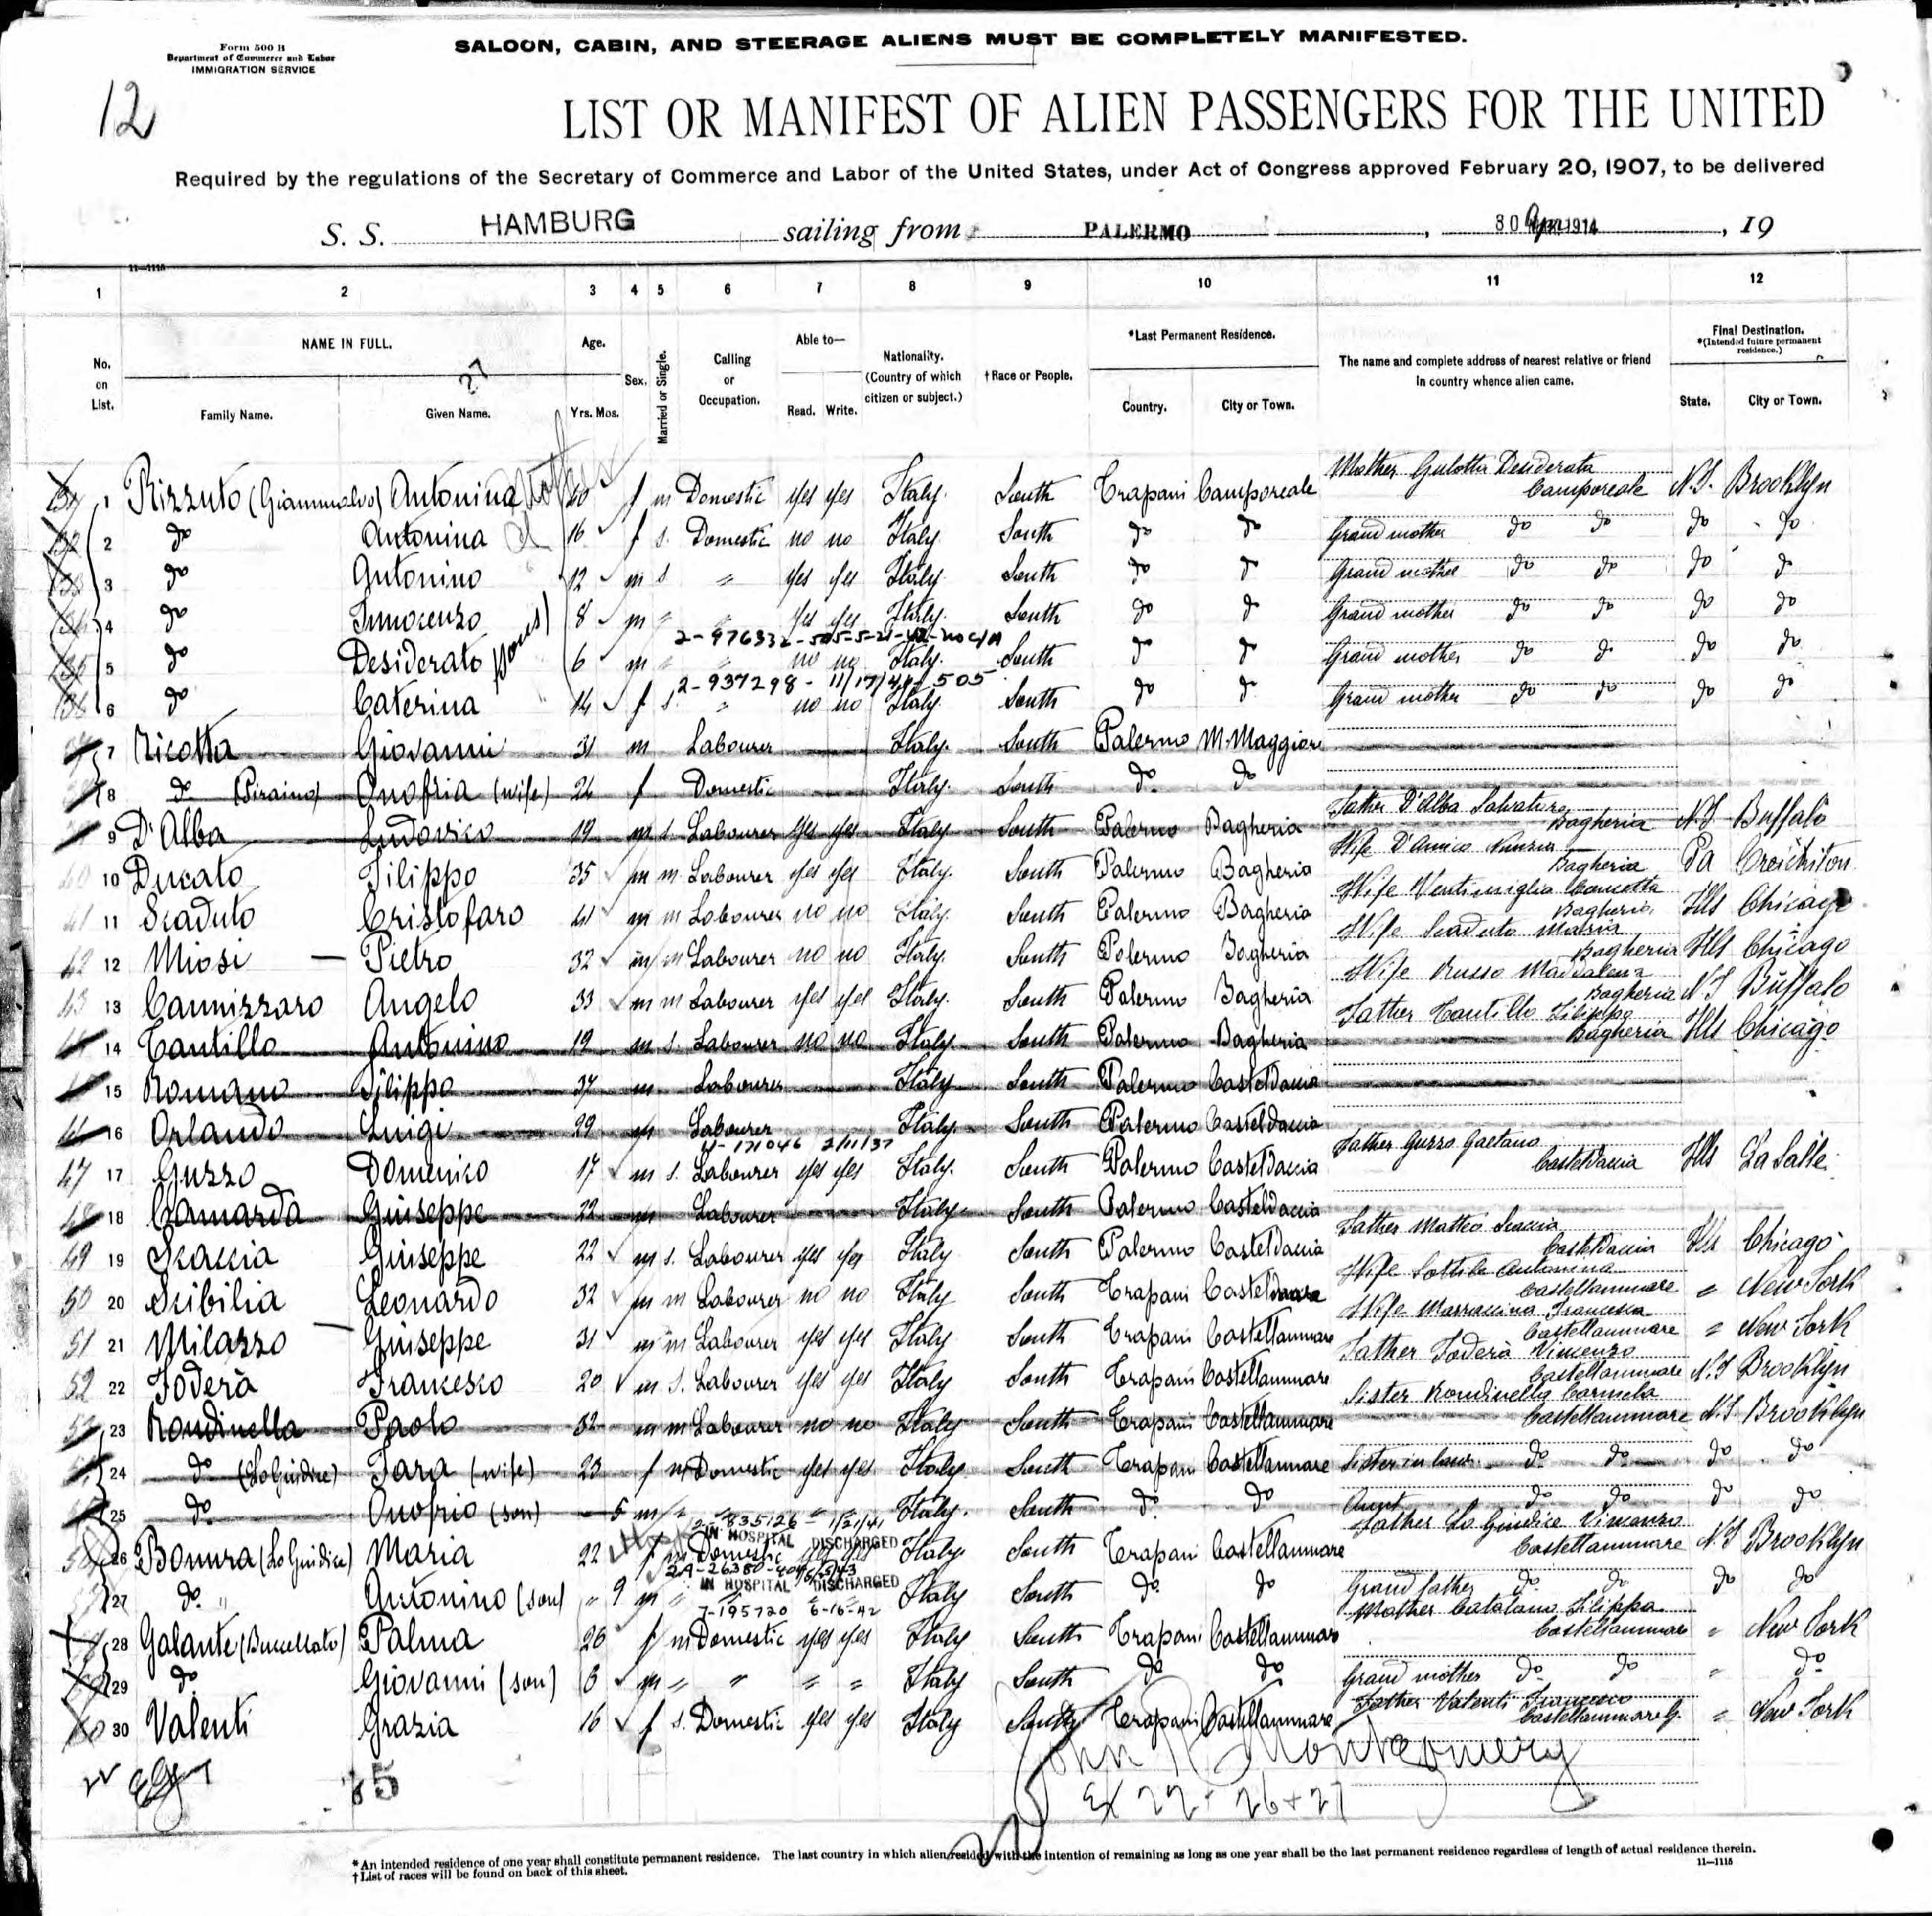 Form 500 B
Department of Commerce and Labor
IMMIGRATION SERVICE
SALOON, CABIN, AND STEERAGE ALIENS MUST BE COMPLETELY MANIFESTED.
12
LIST OR MANIFEST OF ALIEN PASSENGERS FOR THE UNITED
Required by the regulations of the Secretary of Commerce and Labor of the United States, under Act of Congress approved February 20, 1907, to be delivered
S. S. HAMBURG sailing from PALERMO, 30 Apr 1914, 19
11—1115
1 2 3 4 5 6 7 8 9 10 11 12
No. on List. NAME IN FULL. Family Name. Given Name. Age. Yrs. Mos. Sex. Married or Single. Calling or Occupation. Able to— Read. Write. Nationality. (Country of which citizen or subject.) †Race or People. *Last Permanent Residence. Country. City or Town. The name and complete address of nearest relative or friend in country whence alien came. Final Destination. *(Intended future permanent residence.) State. City or Town.
27
Mother Gulotta Desiderata
1 Rizzuto (Giammalvo) Antonina 40 f m Domestic yes yes Italy. South Trapani Camporeale Camporeale N.Y. Brooklyn
2 do Antonina 16 f s. Domestic no no Italy. South do do Grand mother do do do do
3 do Antonino 12 m s " yes yes Italy. South do do Grand mother do do do do
4 do Innocenzo 8 m " " yes yes Italy. South do do Grand mother do do do do
5 do Desiderato 6 m " " no no Italy. South do do Grand mother do do do do
2-937298 - 11/17/41 - 505
6 do Caterina 14 f s. " no no Italy. South do do Grand mother do do do do
7 Ricotta Giovanni 31 m Labourer Italy. South Palermo M. Maggiore
8 do (Piraino) Onofria (wife) 24 f Domestic Italy. South do do
Father D'Alba Salvatore
9 D'Alba Ludovico 19 m s. Labourer yes yes Italy South Palermo Bagheria Bagheria N.Y Buffalo
Wife D'Amico Nunzia
10 Ducato Filippo 35 m m Labourer yes yes Italy. South Palermo Bagheria Bagheria Pa Creichton
Wife Ventimiglia
41 11 Scaduto Cristofaro 41 m m Labourer no no Italy. South Palermo Bagheria Bagheria Ills Chicago
Wife Scaduto Maria
42 12 Miosi Pietro 32 m m Labourer no no Italy. South Palermo Bagheria Bagheria Ills Chicago
Wife Russo Maddalena
43 13 Cannizzaro Angelo 33 m m Labourer yes yes Italy. South Palermo Bagheria Bagheria N.Y Buffalo
Father Tantillo Filippo
14 Tantillo Antonino 19 m s. Labourer no no Italy South Palermo Bagheria Bagheria Ills Chicago
15 Romano Filippo 37 m Labourer Italy South Palermo Casteldaccia
16 Orlando Luigi 29 m Labourer Italy South Palermo Casteldaccia
171046 2/11/37
Father Guzzo Gaetano
47 17 Guzzo Domenico 17 m s. Labourer yes yes Italy. South Palermo Casteldaccia Casteldaccia Ills La Salle
18 Camarda Giuseppe 22 m Labourer Italy South Palermo Casteldaccia
Father Matteo Scaccia
49 19 Scaccia Giuseppe 22 m s. Labourer yes yes Italy South Palermo Casteldaccia Casteldaccia Ills Chicago
Wife Antonina
50 20 Scibilia Leonardo 32 m m Labourer no no Italy South Trapani Castellammare " New York
Wife Francesca
51 21 Milazzo Giuseppe 31 m m Labourer yes yes Italy South Trapani Castellammare Castellammare " New York
Father Foderà Vincenzo
52 22 Foderà Francesco 20 m s. Labourer yes yes Italy South Trapani Castellammare Castellammare N.Y Brooklyn
Sister Rondinella Carmela
23 Rondinella Paolo 32 m m Labourer no no Italy South Trapani Castellammare Castellammare N.Y Brooklyn
24 do (Lo Giudice) Sara (wife) 23 f m Domestic yes yes Italy South Trapani Castellammare Sister in law do do do do
25 do Onofrio (son) 5 m " " " " Italy. South do do Aunt do do do do
2-835126 - 1/21/41
IN HOSPITAL DISCHARGED
Father Lo Giudice Vincenzo
26 Bonura (Lo Giudice) Maria 22 f m Domestic yes yes Italy South Trapani Castellammare Castellammare N.Y Brooklyn
IN HOSPITAL DISCHARGED
27 do " Antonino (son) " 9 m " Italy South do do Grand father do do do do
7-195720 6-16-42
Mother Catalano Filippa
28 Galante (Buccellato) Palma 26 f m Domestic yes yes Italy South Trapani Castellammare Castellammare " New York
29 do Giovanni (son) 3 m " " " " Italy South do do Grand mother do do " do
Father Valenti Francesco
30 Valenti Grazia 16 f s. Domestic yes yes Italy South Trapani Castellammare Castellammare G. " New York
John Montgomery
Ex 22 + 26 + 27
*An intended residence of one year shall constitute permanent residence. The last country in which alien resided with the intention of remaining as long as one year shall be the last permanent residence regardless of length of actual residence therein.
†List of races will be found on back of this sheet.
11—1115